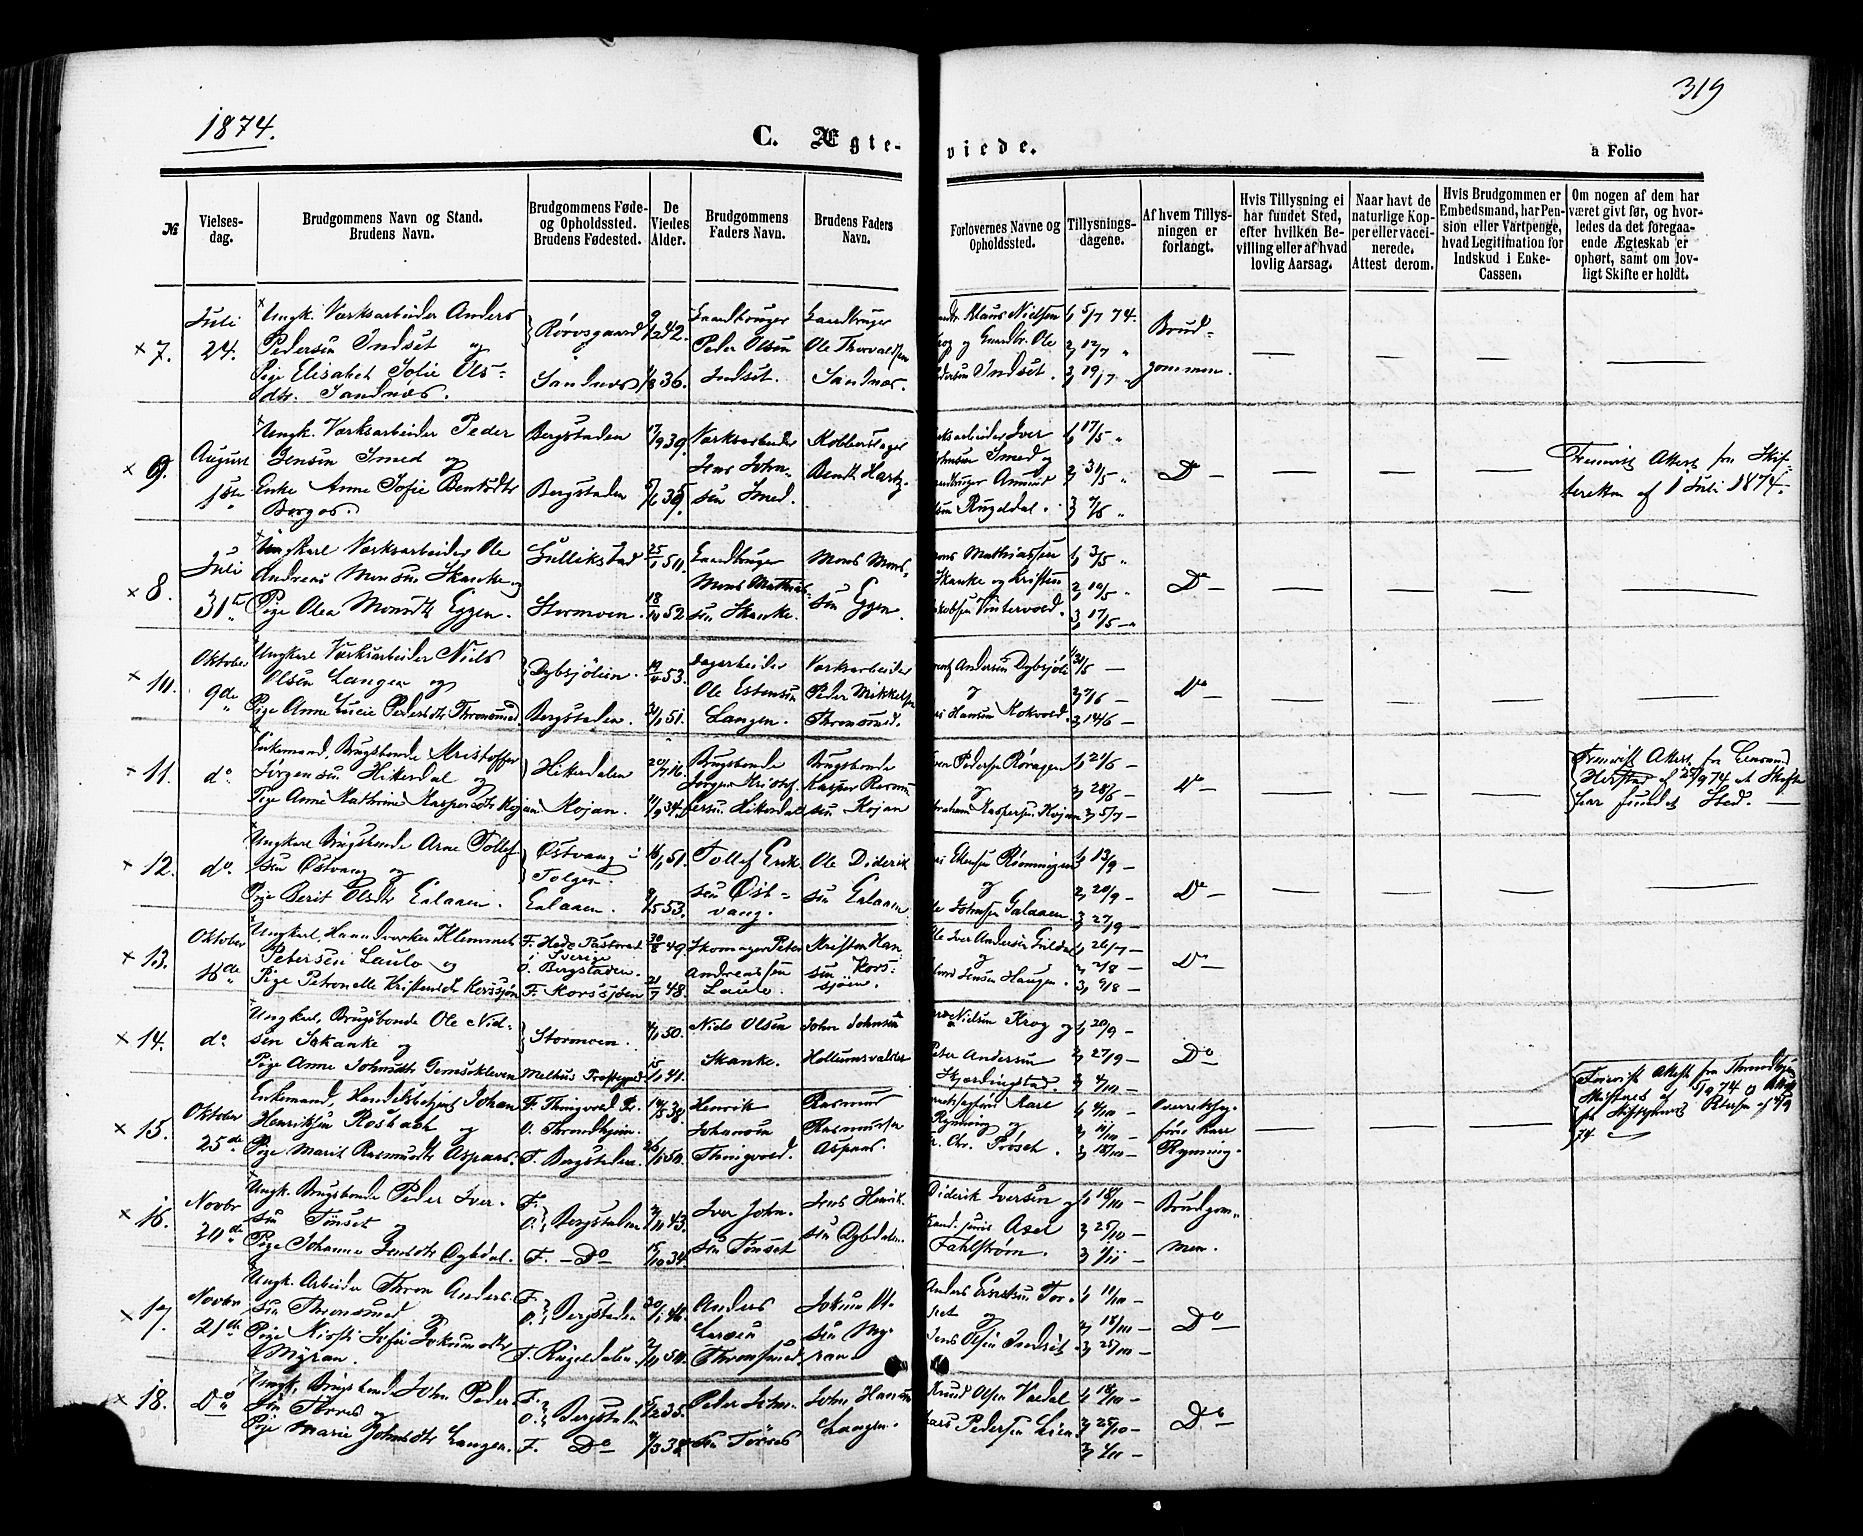 1874.
319
C. Ægte-
viede.
a Folio
№
Vielses-
dag.
Brudgommens Navn og Stand.
Brudens Navn.
Brudgommens Føde-
og Opholdssted.
Brudens Fødested.
De
Viedes
Alder.
Brudgommens
Faders Navn.
Brudens Faders
Navn.
Forlovernes Navne og
Opholdssted.
Tillysnings-
dagene.
Af hvem Tillys-
ningen er
forlangt.
Hvis Tillysning ei
har fundet Sted,
efter hvilken Be-
villing eller af hvad
lovlig Aarsag.
Naar havt de
naturlige Kop-
per eller vacci-
nerede.
Attest derom.
Hvis Brudgommen er
Embedsmand, har Pen-
sion eller Vartpenge,
hvad Legitimation for
Indskud i Enke-
Cassen.
Om nogen af dem har
været givt før, og hvor-
ledes da det foregaa-
ende Ægteskab er
ophørt, samt om lov-
ligt Skifte er holdt.
× 7.
Juli
24.
Ungk. Værksarbeider Anders
Pedersen Indset og
Pige Elisabet Sofie Ols-
dtr. Sandnæs.
Rørosgaard
Sandnes
9/2 42.
36.
Gaardbruger
Peder Olsen
Indset.
Gaardbruger
Ole Thorvaldsen
Sandnæs.
Klaus Nielsen
og Gaardbr. Ole
Pedersen Indset.
1, 5/7 74.
2, 12/7 "
3, 19/7 "
Brud-
gommen.
× 9.
August
1ste
Ungk. Værksarbeider Peder
Jensen Smed og
Enke Anne Sofie Bentsdtr
Borgos.
Bergstaden
Bergstaden
17/9 39.
39.
Værksarbeider
Jens John-
sen Smed.
Kobberslager
Bendt Hartz.
Værksarbeider Iver
Johnsen Smed og
Gaardbruger Amund
Olsen Rugeldal.
1, 17/5 "
2, 31/5 "
3 7/6 "
Do —
Fremvist Attest fra Skif-
teretten af 1 Juli 1874.
× 8.
Juli
31te
Ungkarl Værksarbeider Ole
Andreas Monsen Skanke og
Pige Olea Monsdtr Eggen.
Gullikstad
Stormoen.
50.
52.
Gaardbruger
Mons Mathias-
sen Skanke.
Mons Mons-
sen Eggen.
Mons Mathiassen
Skanke og Kristen
Jakobsen Vintervold.
1, 3/5 "
2, 10/5 "
3, 17/5 "
Do —
× 10.
Oktober
9de
Ungkarl Værksarbeider Niels
Olsen Langen og
Pige Anne Lucie Pedersdtr Thronsmed
Dybsjølien.
Bergstaden.
53.
51.
Dagarbeider
Ole Estensen
Langen.
Værksarbeider
Peder Mikkelsen
Thronsmed.
Andersen Dybsjøli
og
Hansen Kokvold.
31/5 —
2, 7/6 —
3, 14/6 —
Do
× 11.
do.
Enkemand, Brugsbonde Kristoffer
Jørgensen Hikerdal og
Pige Anne Kathrine Kaspersdtr Kojan
Hikerdalen
Kojan.
20/7 16.
34.
Brugsbonde
Jørgen Kristof-
fersen Hikerdal
Brugsbonde
Kasper Rasmus-
sen Kojan
Even Pedersen Røragen
og
Abraham Kaspersen Kojan
1, 21/6 —
2, 28/6 —
3, 5/7 —
Do
Fremvist Attest fra Lensmand
Herstad af 25/9 74 at Skifte
har fundet Sted.
× 12.
do.
Ungkarl Brugsbonde Arne Tollef-
sen Østvang og
Pige Berit Olsdtr Galaaen.
Østvang i
Tolgen.
Galaaen.
51.
53.
Tollef Erik-
sen Øst-
vang.
Ole Diderik-
sen Galaaen
Ellersen Rønningen
og
Ole Johnsen Galaaen.
1, 13/9 —
2, 20/9 —
3, 27/9 —
Do —
× 13.
Oktober
16de
Ungkarl, Haandværker Klemmet
Petersen Laulo og
Pige Petronelle Kristensdtr Korssjøn
F. Hede Pastorat
i Sverige
O. Bergstaden.
F. Korssjøen
30/8 49.
21/7 48.
Skomager Peter
Andreassen
Laulo.
Kristen Han-
sen Kors-
sjøen.
Ole Iver Andersen Guldal
og
Jensen Haugen.
1, 26/7 —
2, 2/8 —
3, 9/8 —
Do —
× 14.
do.
Ungkarl, Brugsbonde Ole Niel-
sen Skanke og
Pige Anne Johnsdtr Gemsekleven
Stormoen.
Melhus Prestegjeld
50.
41.
Niels Olsen
Skanke.
John Johnsen
Hollumsvaldet
Nielsen Krog og
Peter Andersen
Skjerdingstad.
1, 20/9 —
2, 27/9 —
3, 4/10 —
Do —
× 15.
Oktober
25de
Enkemand, Handelsbetjent Johan
Henriksen Rosbach og
Pige Marit Rasmusdtr Aspaas.
F. Thingvold Pr.
O. Throndhjem.
F. Bergstaden.
38.
50.
Henrik
Johansen
Thingvold.
Rasmus
Rasmussen
Aspaas.
Kare
Rynning og
Chr. Prøsch.
1, 4/10 —
2, 11/10 —
3, 18/10 —
Overretssag-
fører Kare
Rynning.
74.
× 16.
Novbr
20de
Ungk. Brugsbonde Peder Iver-
sen Tønset og
Pige Johanna Jensdtr Dybdal.
F.
O. Bergstaden
F. — Do —
43.
34.
Iver John-
sen Tønset
Jens Henrik-
sen Dybdalen
Diderik Iversen og
Kand. juris Axel
Fahlstrøm.
1, 18/10 —
2, 25/10 —
3, 1/11 —
Brudgom-
men.
× 17.
Novbr
21de
Ungk. Arbeider Thron Anders-
sen Thronsmed og
Pige Kirsti Sofie Jokumsdtr
Myran.
F.
O. Bergstaden
F. Rugeldalen.
46.
50.
Anders
Larsen
Thronsmed
Jokum
sen My-
ran
Anders Ersen Tor-
set og
Jens Olsen Indset.
1, 11/10 —
2, 18/10 —
3, 25/10 —
Do —
× 18.
Do
Ungk. Brugsbonde John Peder-
sen Torres og
Pige Marie Johnsdtr Langen.
F.
O. Bergstaden
F. Do
35.
38.
Peder John-
sen Torres
John Hansen
Langen.
Knud Olsen Vaadal
Lars Pedersen Lien
1, 18/10 —
2, 25/10 —
3, 1/11 —
Do —